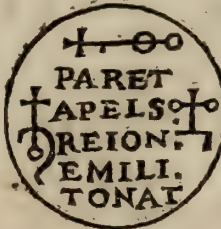 PARET
APELS:
REION.
EMILI.
TONAT